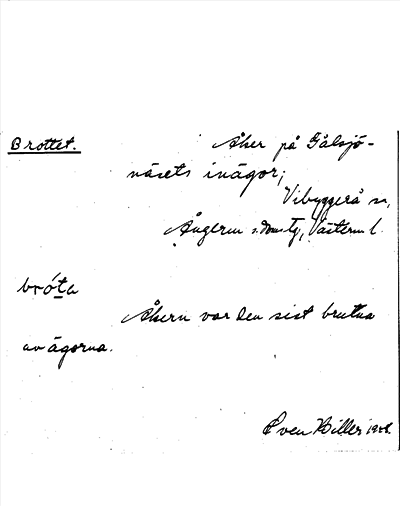 Brottet.
Åker på Gålsjö-
näsets inägor;
Vibyggerå sn,
Ångerm. s. domstg, Västern. l.
bróta
Åkern var den sist brutna
av ägorna.
Sven Biller